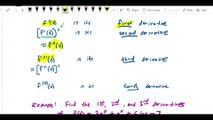 f'(x) is its first derivative
[f'(x)]' is its second derivative
= f''(x)
f'''(x) is its third derivative
= [f''(x)]'
is its fourth derivative
Example! Find the 1st, 2nd, and 3rd derivatives